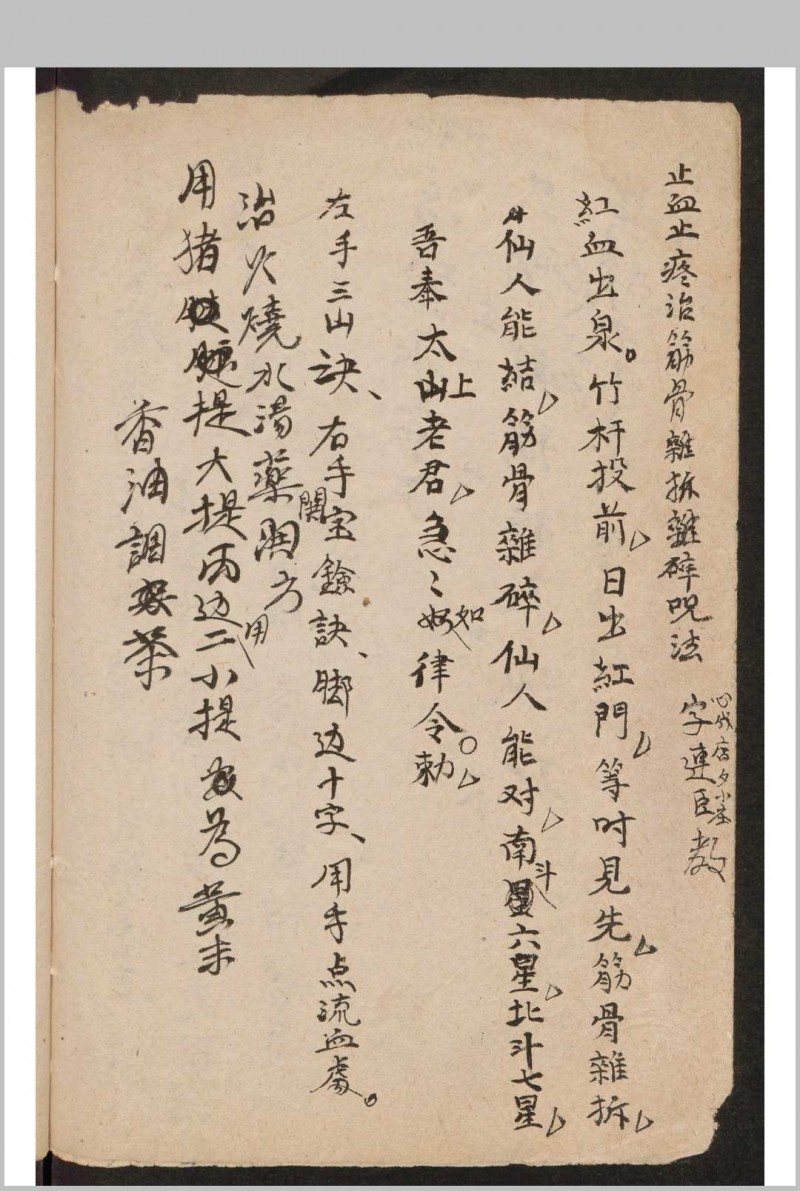 止血止疼治筋骨雜拆雜碎咒法
字連臣教
紅血出泉。竹杆投前日出紅門等時見先筋骨雜拆
仙人能結筋骨雜碎仙人能对南斗六星北斗七星
吾奉太上老君急〻如律令勅
左手三山訣、右手宝鐱訣、脚边十字、用手点流血處。
治火燒水湯藥開方
用猪 提大提两边用二小提 為黄末
香油調 茶